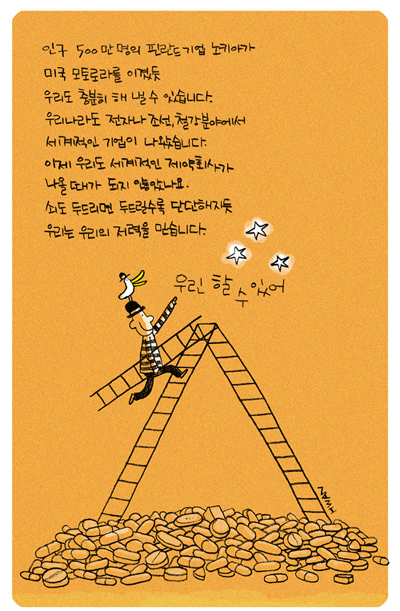 인구 500만 명의 핀란드 기업 노키아가
미국 모토로라를 이겼듯
우리도 충분히 해 낼 수 있습니다.
우리나라도 전자나 조선, 철강분야에서
세계적인 기업이 나왔습니다.
이제 우리도 세계적인 제약회사가
나올 때가 되지 않았나요.
쇠도 두드리면 두드릴수록 단단해지듯
우리는 우리의 저력을 믿습니다.
우린 할 수 있어